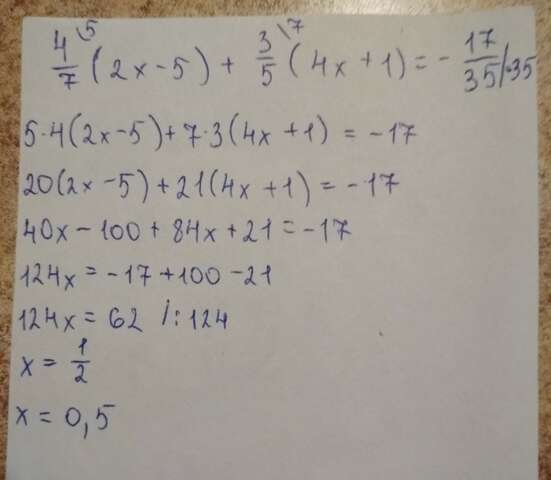 4/7 \5 (2x-5) + 3/5 \7 (4x+1) = - 17/35 /·35
5·4(2x-5)+7·3(4x+1) = -17
20(2x-5)+21(4x+1) = -17
40x-100+84x+21=-17
124x = -17+100-21
124x = 62 /:124
x = 1/2
x = 0,5